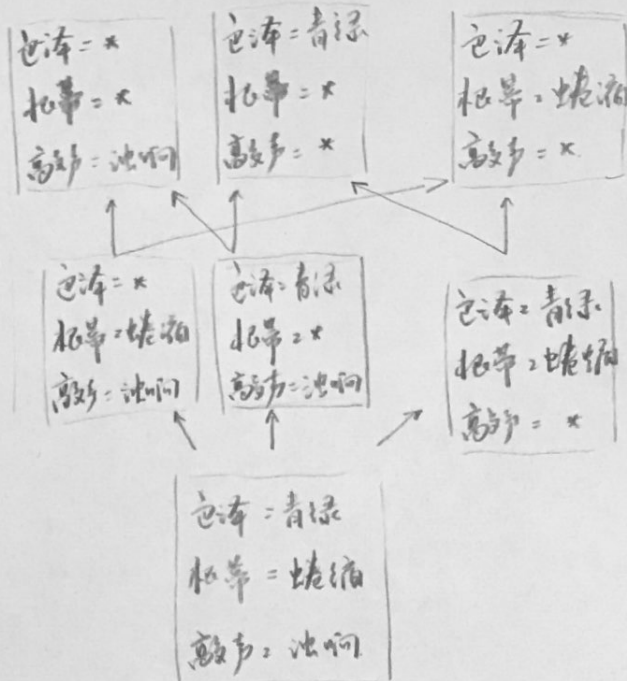 色泽=*
根蒂=*
敲声=浊响
色泽=青绿
根蒂=*
敲声=*
色泽=*
根蒂=蜷缩
敲声=*
色泽=*
根蒂=蜷缩
敲声=浊响
色泽=青绿
根蒂=*
敲声=浊响
色泽=青绿
根蒂=蜷缩
敲声=*
色泽=青绿
根蒂=蜷缩
敲声=浊响